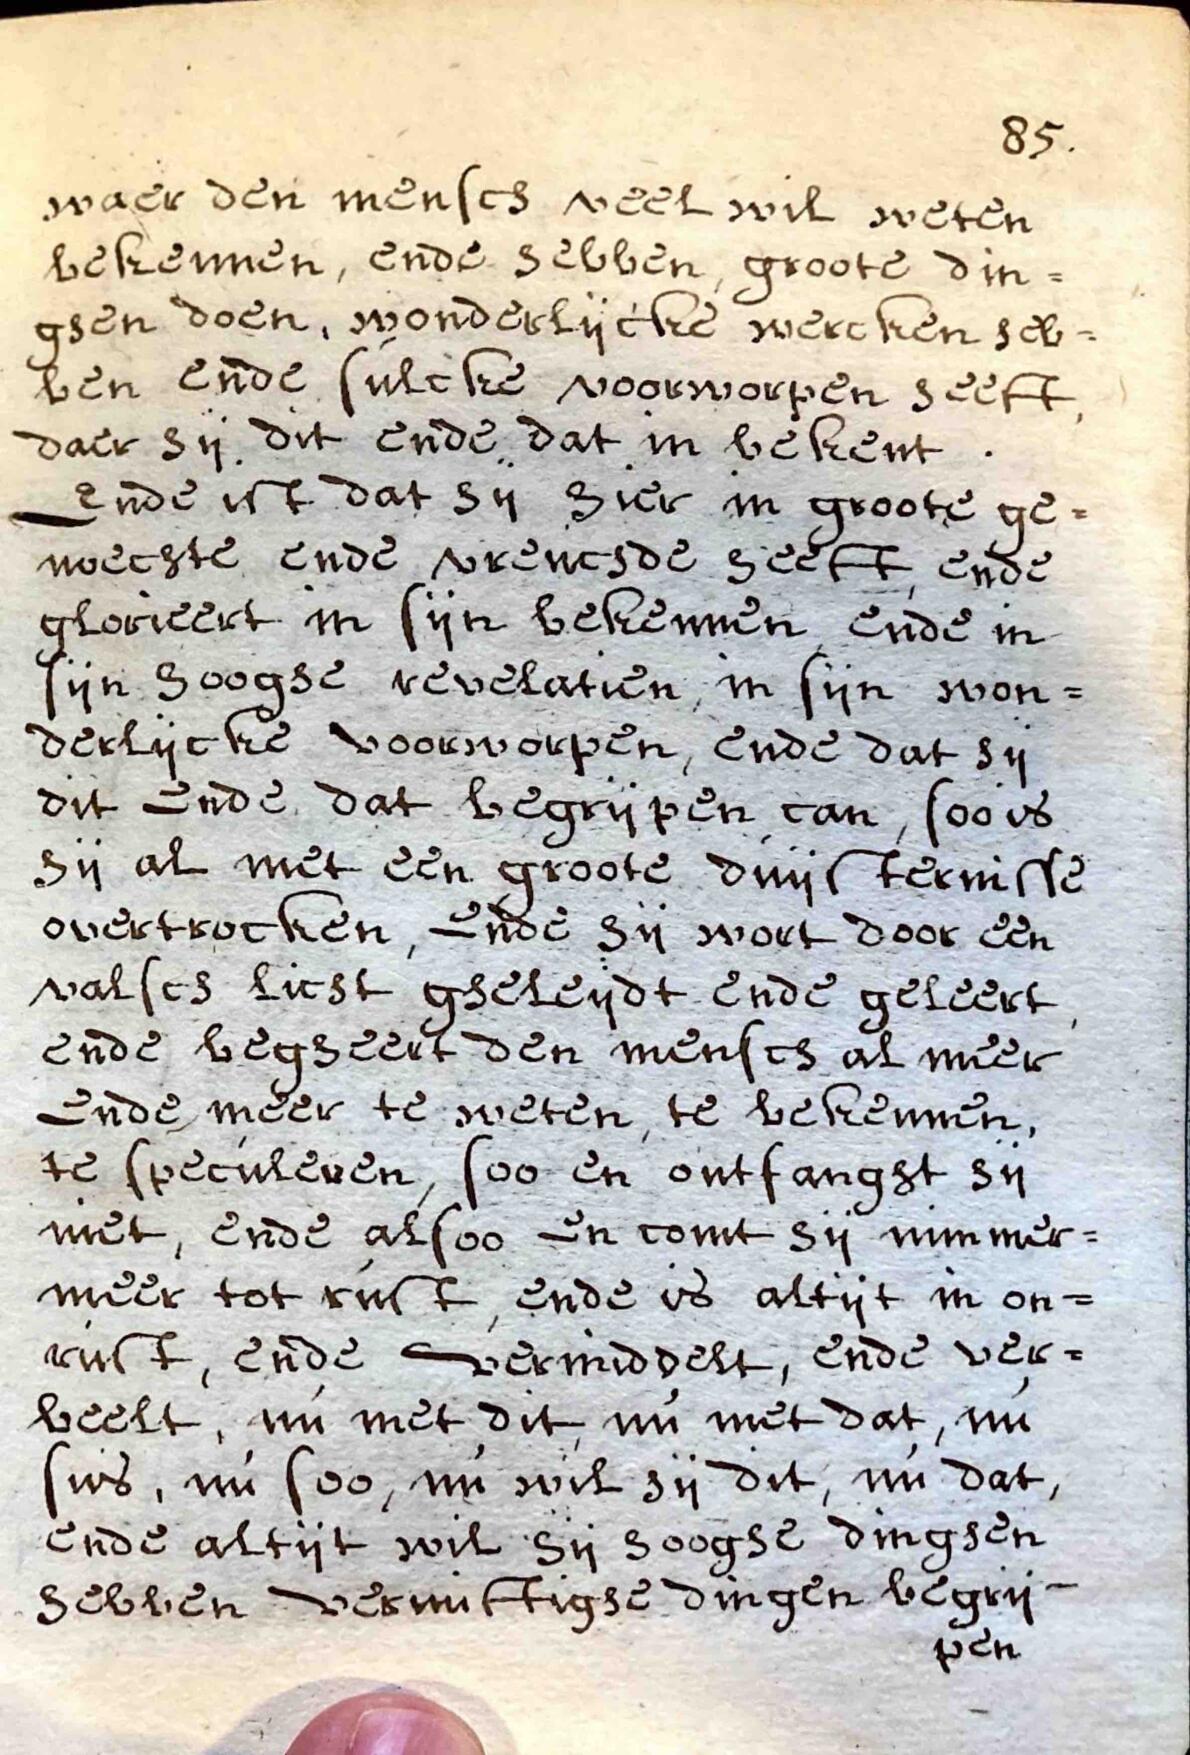 85.
waer den mensch veel wil weten
bekennen, ende hebben, groote din=
ghen doen, wonderlijcke wercken heb=
ben ende sulcke voorworpen heeft,
daer hij dit ende dat in bekent.
Ende ist dat hij hier in groote ge=
noechte ende vreuchde heeft, ende
glorieert in sijn bekennen, ende in
sijn hooghe revelatien, in sijn won=
derlijcke voorworpen, ende dat hij
dit ende dat begrijpen can, soo is
hij al met een groote duijsternisse
overtrocken, Ende hij wort door een
valsch licht gheleijdt ende geleert,
ende begheert den mensch al meer
Ende meer te weten, te bekennen,
te speculeren, soo en ontfanght hij
niet, ende alsoo en comt hij nimmer=
meer tot rust, ende is altijt in on=
rust, ende vermiddelt, ende ver=
beelt, nu met dit, nu met dat, nu
sus, nu soo, nu wil hij dit, nu dat,
ende altijt wil hij hooghe dinghen
hebben vernuftighe dingen begrij-
pen